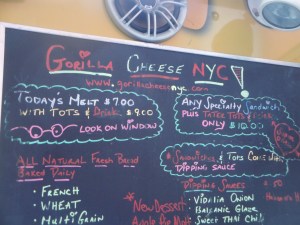 Gorilla Cheese NYC!
www.gorillacheesenyc.com
Today's Melt $7.00
with Tots & Drink $9.00
Look on Window
Any Specialty Sandwich
Plus Tater Tots &
Only $10.00
All Natural French Bread
Baked Daily
• French
• Wheat
• Multi Grain
* Sandwiches & Tots Come with
Dipping Sauce
Dipping Sauces
• Vidalia Onion
• Balsamic Glaze
• Sweet Thai Chili
*New Dessert
Apple Pie Melt